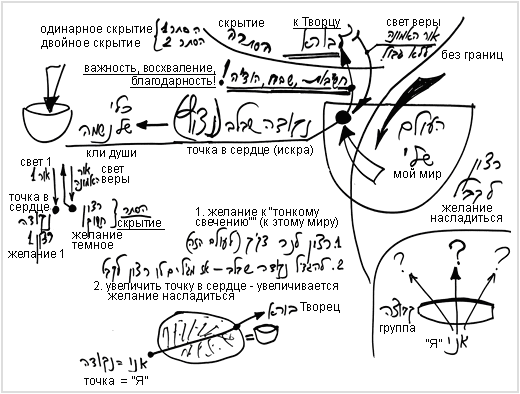 одинарное скрытие
הסתר 1
скрытие
к Творцу
свет веры
двойное скрытие
הסתר 2
הסתרה
בורא
אור האמונה
ללא גבול
без границ
важность, восхваление,
благодарность!
חשיבות, שבח, הודיה!
כלי
של נשמה
נקודה שבלב
(ניצוץ)
העולם
שלי
кли души
точка в сердце (искра)
мой мир
רצון
לקבל
желание
насладиться
свет 1
אור 1
אור
האמונה
свет
веры
точка в
сердце
נקודה
רצון 1
желание 1
רצון
הסתר
скрытие
желание
темное
1. желание к "тонкому
свечению"" (к этому миру)
1. רצון לנר דקיק (לעולם הזה)
2. להגדיל נקודה שבלב – אז מגדילים לו רצון לקבל
2. увеличить точку в сердце - увеличивается
желание насладиться
בורא
Творец
=
אני = נקודה
точка = "Я"
? ? ?
קבוצה
группа
"Я"
אני